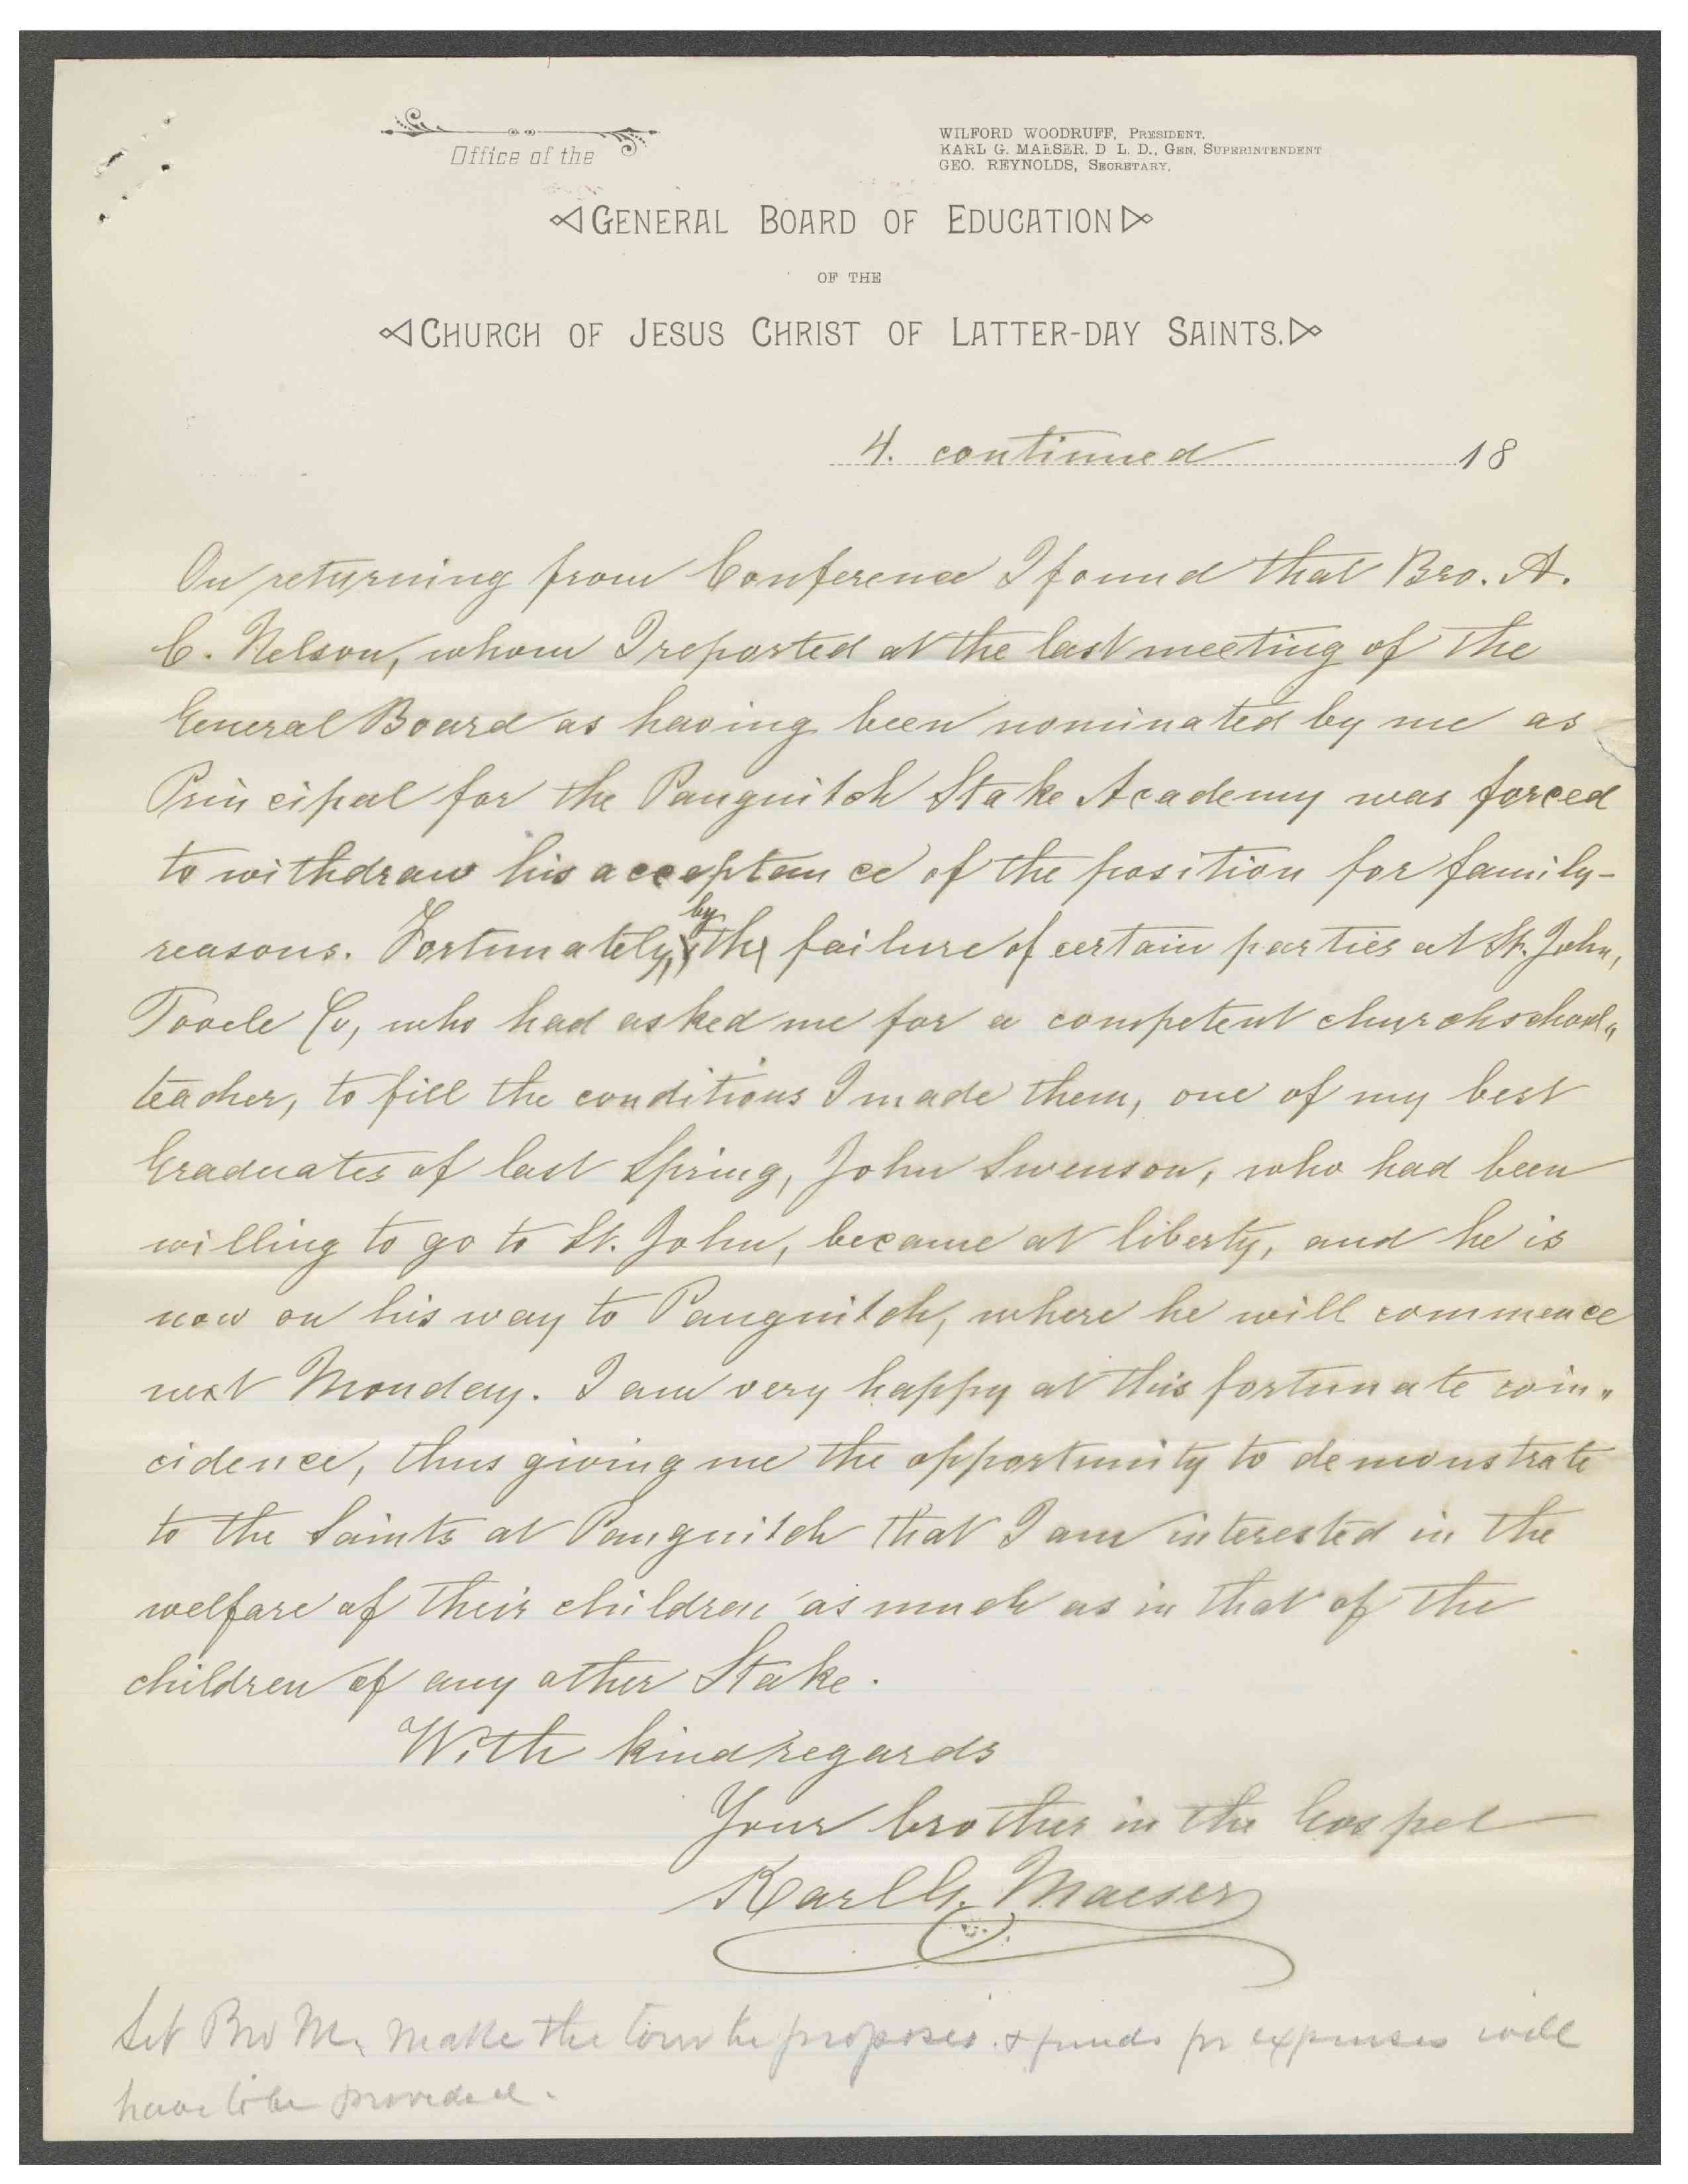 Office of the
WILFORD WOODRUFF, PRESIDENT.
KARL G. MAESER. D L. D., GEN. SUPERINTENDENT
GEO. REYNOLDS, SECRETARY.
GENERAL BOARD OF EDUCATION
OF THE
CHURCH OF JESUS CHRIST OF LATTER-DAY SAINTS.
4. continued 18
On returning from Conference I found that Bro. A.
C. Nelson, whom I reported at the last meeting of the
General Board as having been nominated by me as
Principal for the Panguitch Stake Academy was forced
to withdraw his acceptance of the position for family-
reasons. Fortunately, by the failure of certain parties at St. John,
Tooele Co, who had asked me for a competent churchschool„
teacher, to fill the conditions I made them, one of my best
Graduates of last Spring, John Swenson, who had been
willing to go to St. John, became at liberty, and he is
now on his way to Panguitch, where he will commence
next Monday. I am very happy at this fortunate coin„
cidence, thus giving me the opportunity to demonstrate
to the Saints at Panguitch that I am interested in the
welfare of their children as much as in that of the
children of any other Stake.
With kind regards
Your brother in the Gospel
Karl G. Maeser
Let Bro M. make the tour he proposes. & funds for expenses will
have to be provided.